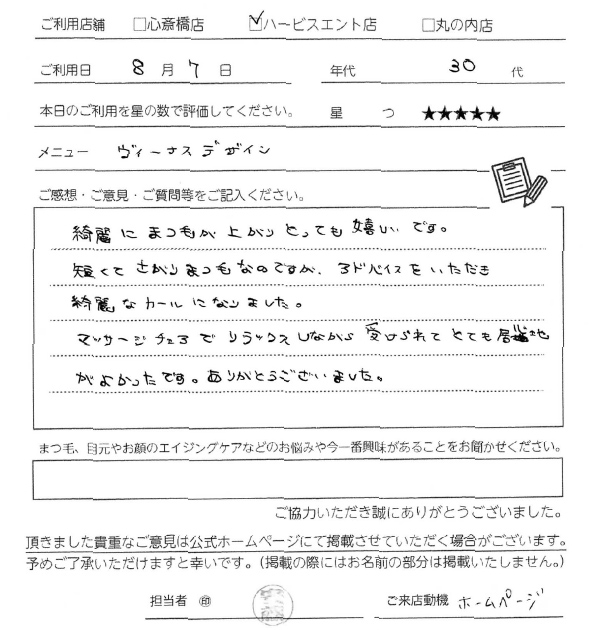 ご利用店舗 □心斎橋店 ☑ハービスエント店 □丸の内店
ご利用日 8月7日 年代 30代
本日のご利用を星の数で評価してください。 星 つ ★★★★★
メニュー ヴィーナスデザイン
ご感想・ご意見・ご質問等をご記入ください。
綺麗にまつ毛が上がりとっても嬉しいです。
短くてさがりまつ毛なのですが、アドバイスをいただき
綺麗なカールになりました。
マッサージチェアでリラックスしながら受けられてとても居心地
がよかったです。ありがとうございました。
まつ毛、目元やお顔のエイジングケアなどのお悩みや今一番興味があることをお聞かせください。
ご協力いただき誠にありがとうございました。
頂きました貴重なご意見は公式ホームページにて掲載させていただく場合がございます。
予めご了承いただけますと幸いです。(掲載の際にはお名前の部分は掲載いたしません。)
担当者 ㊞ ご来店動機 ホームページ